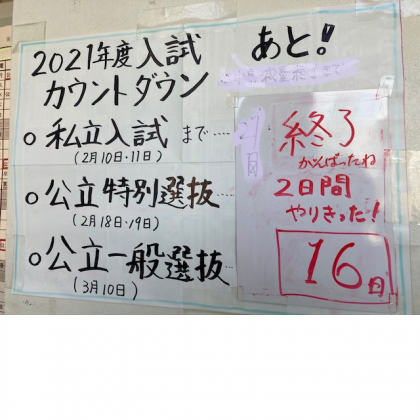 2021年度入試
カウントダウン
あと!
私立入試まで....
(2月10日・11日)
終了
がんばったね
公立特別選抜...
(2月18日・19日)
2日間
やりきった!
公立一般選抜...
(3月10日)
16日